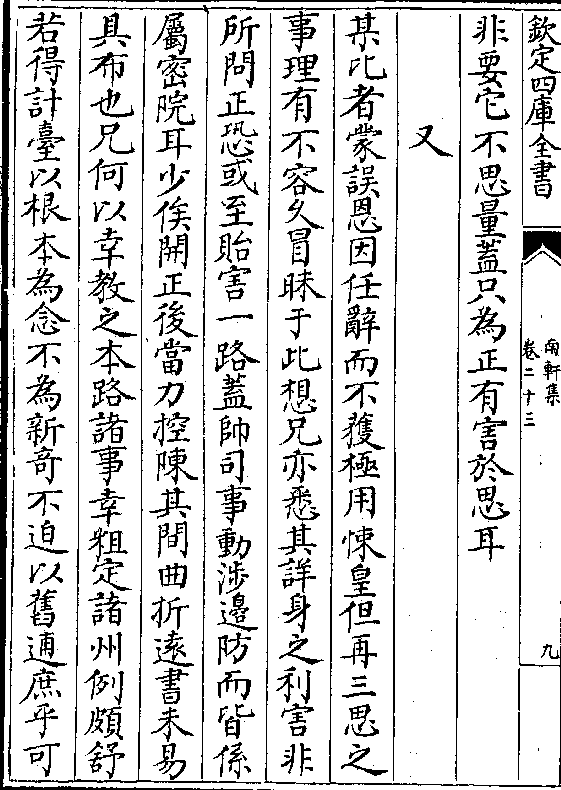 欽定四庫全書
南軒集
卷二十三
九
非要它不思量蓋只為正有害於思耳
又
某比者蒙誤恩因任辭而不獲極用悚皇但再三思之
事理有不容久冒昧于此想兄亦悉其詳身之利害非
所問正恐或至貽害一路蓋帥司事動涉邊防而皆係
屬密院耳少俟開正後當力控陳其間曲折遠書未易
具布也兄何以幸教之本路諸事幸粗定諸州例頗舒
若得計臺以根本為念不為新奇不迫以舊逋庶乎可